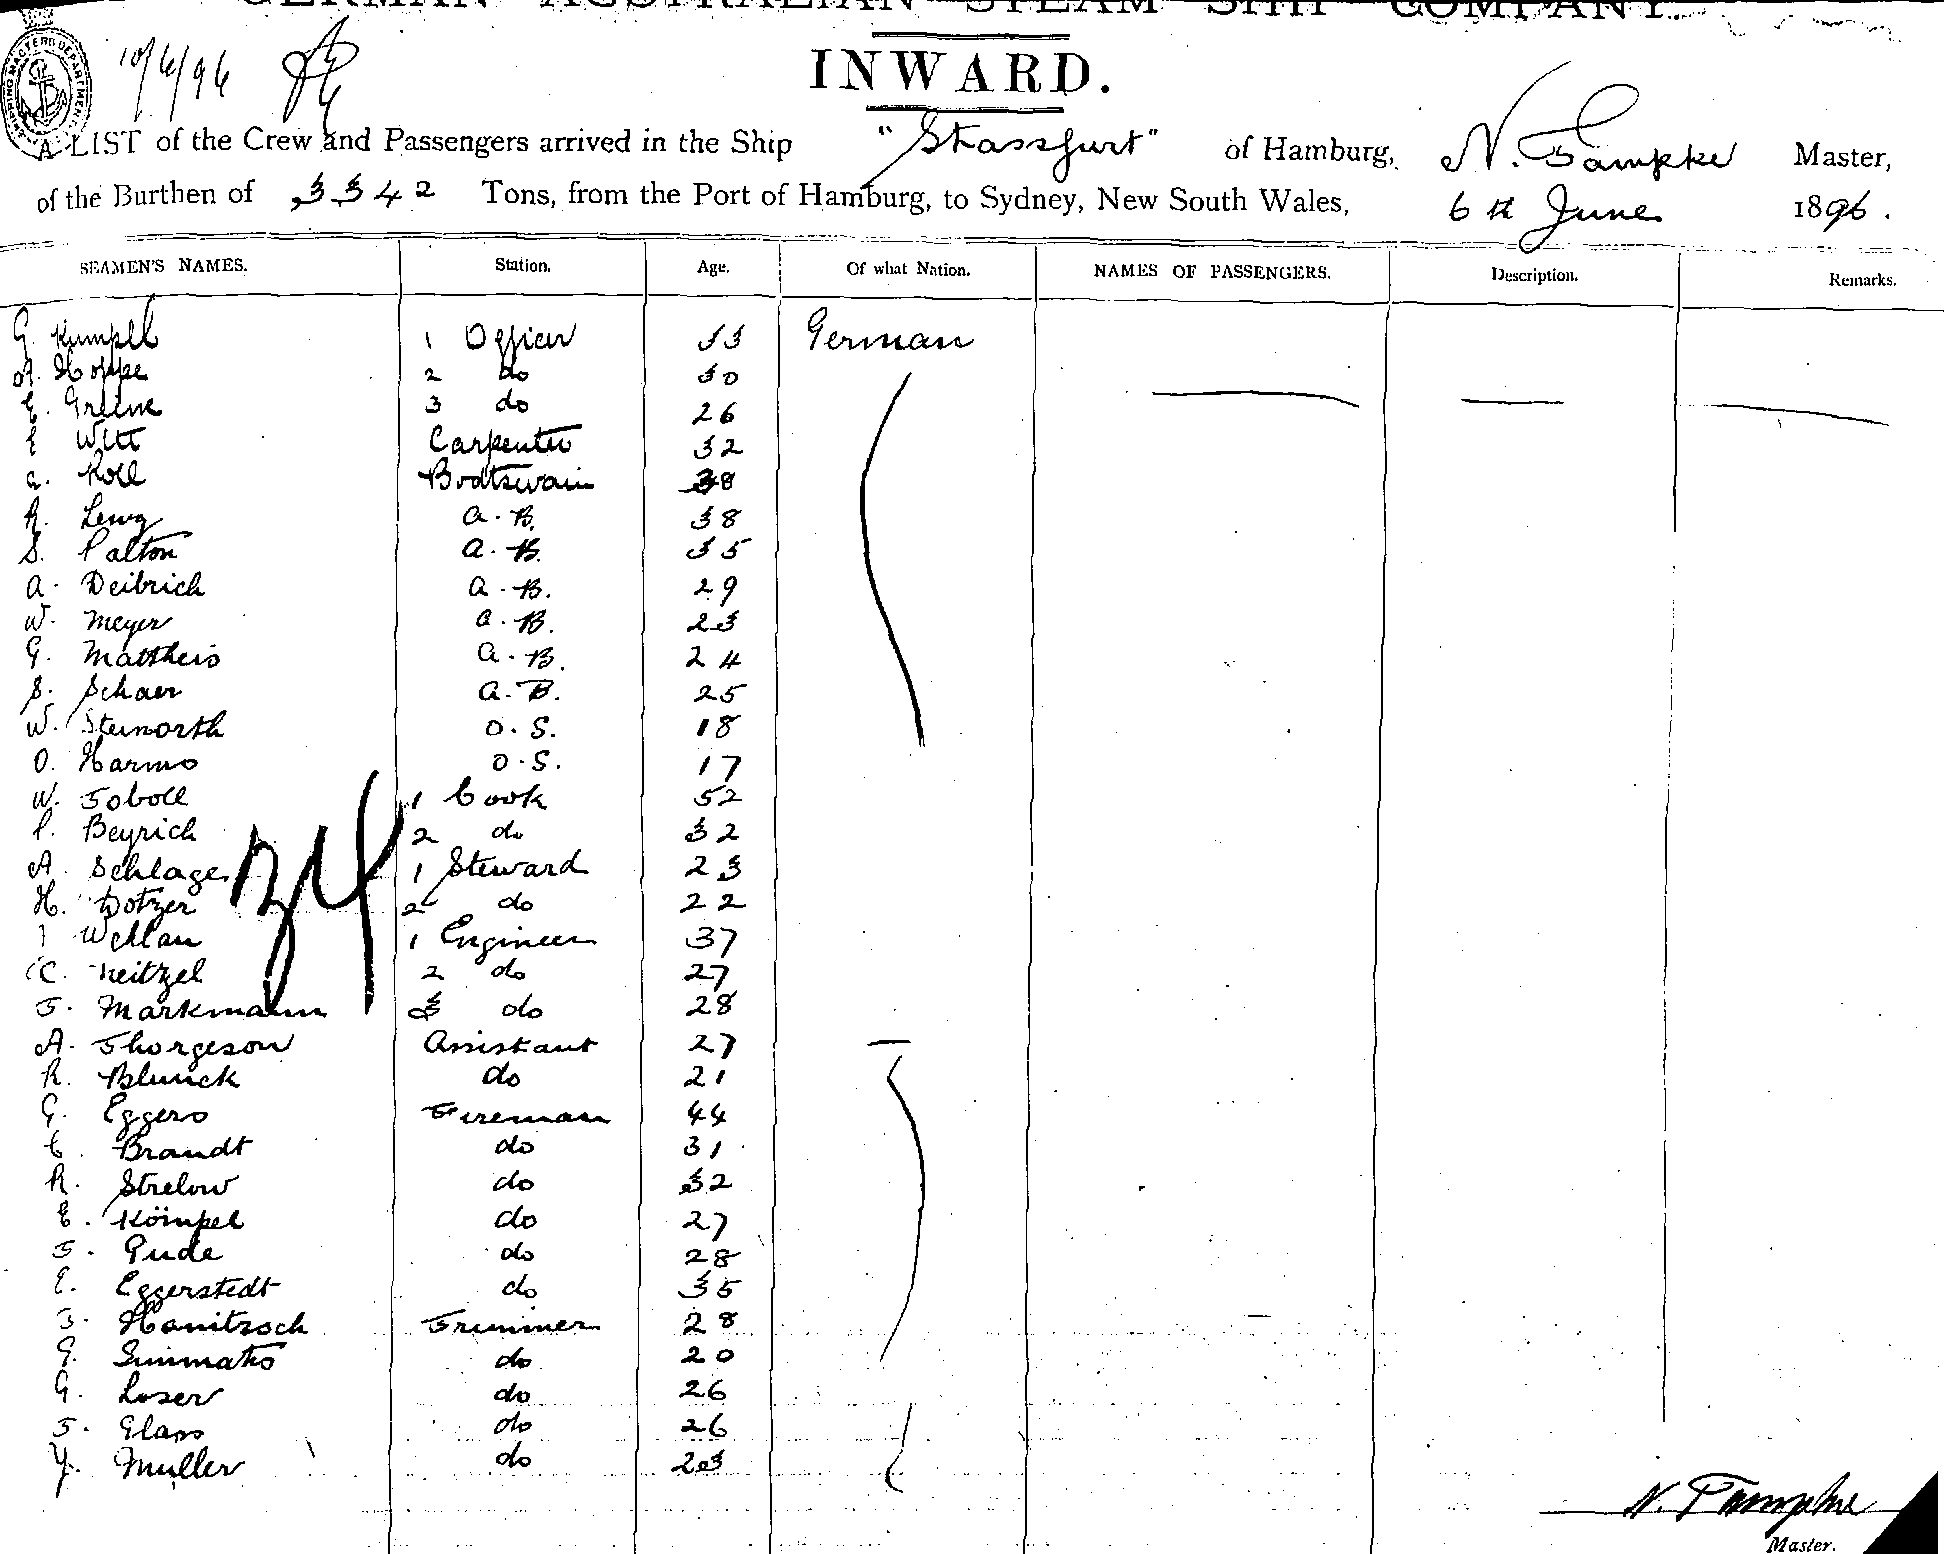 GERMAN AUSTRALIAN STEAM SHIP COMPANY.
INWARD.
10/6/96
A LIST of the Crew and Passengers arrived in the Ship "Stassfurt" of Hamburg, N. Pampke Master,
of the Burthen of 3342 Tons, from the Port of Hamburg, to Sydney, New South Wales, 6th June 1896.
SEAMEN'S NAMES. Station. Age. Of what Nation. NAMES OF PASSENGERS. Description. Remarks.
G. Kumpell 1 Officer 33 German
A. Hoppe 2 do 30
E. Greine 3 do 26
E Witt Carpenter 32
A. Koll Boatswain 38
R. Lewg A.B. 38
S. Palton A.B. 35
A. Deibrich A.B. 29
W. Meyer A.B. 23
G. Mattheis A.B. 24
S. Schaer A.B. 25
W. Steinorth O.S. 18
O. Harms O.S. 17
W. Toboll 1 Cook 52
P. Beyrich 2 do 32
A. Schlage 1 Steward 23
H. Dotzer 2 do 22
Wellau 1 Engineer 37
C. Neitzel 2 do 27
F. Markmann 3 do 28
A. Thorgeson Assistant 27
R. Blunck do 21
G. Eggers Fireman 44
C. Brandt do 31
R. Strelow do 32
E. Kömpel do 27
F. Gude do 28
E. Eggerstedt do 35
F. Hanitzsch Trimmer 28
G. do 20
G. Loser do 26
F. Glass do 26
Y. Muller do 23
34
N. Pampke
Master.